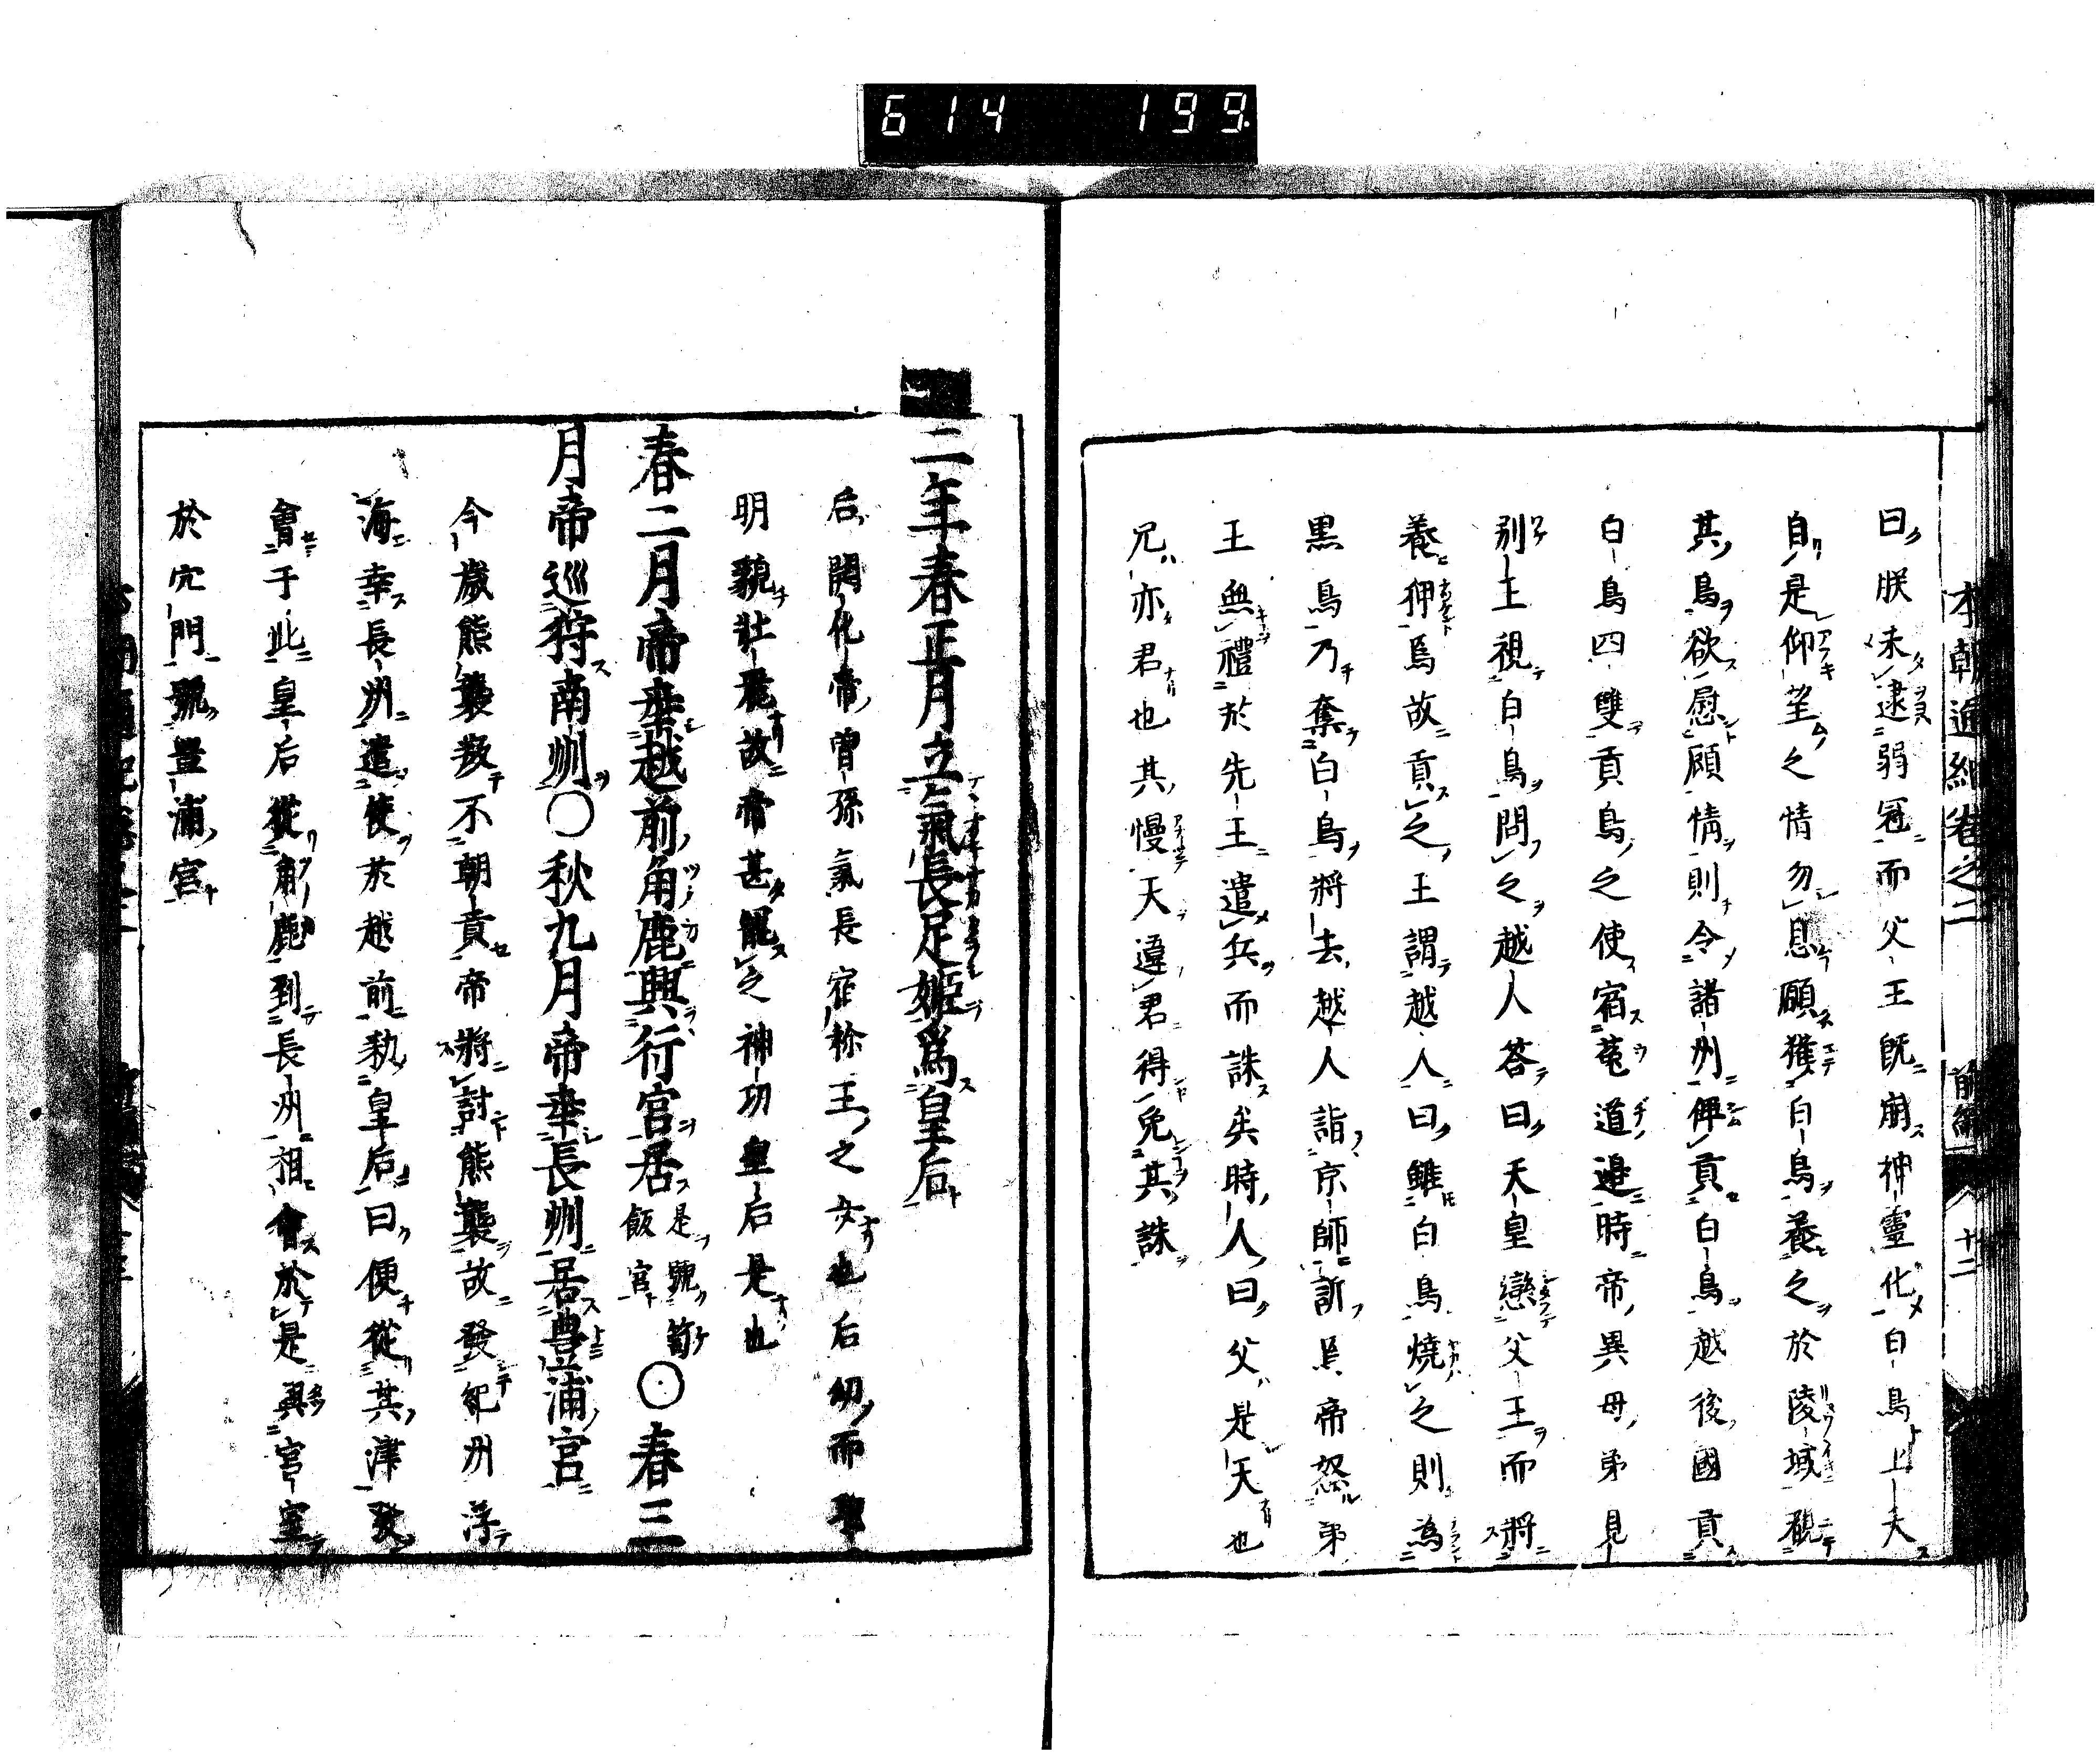 614 199
本朝通紀卷之二 前編 廿二
曰朕未逮弱冠而父王既崩神靈化白鳥上天
自是仰望之情勿息願獲白鳥養之於陵域覩
其鳥欲慰顧情則令諸州俾貢白鳥越後國貢
白鳥四雙貢鳥之使宿菟道邊時帝異母弟見
別王視白鳥問之越人答曰天皇戀父王而將
養狎焉故貢之王謂越人曰雖白鳥燒之則為
黑鳥乃奪白鳥將去越人詣京師訴焉帝怒弟
王無禮於先王遣兵而誅矣時人曰父是天也
兄亦君也其慢天違君得免其誅
二年春正月立氣長足姬為皇后
后開化帝曾孫氣長宿祢王之女也后幼而聰
明貌壯麗故帝甚寵之神功皇后是也
春二月帝幸越前角鹿興行宮居是號笥飯宮○春三
月帝巡狩南州○秋九月帝幸長州居豊浦宮
今歲熊襲叛不朝貢帝將討熊襲故發紀州浮
海幸長州遣使於越前勅皇后曰便從其津發
會于此皇后從角鹿到長州相會於是興宮室
於穴門號豊浦宮